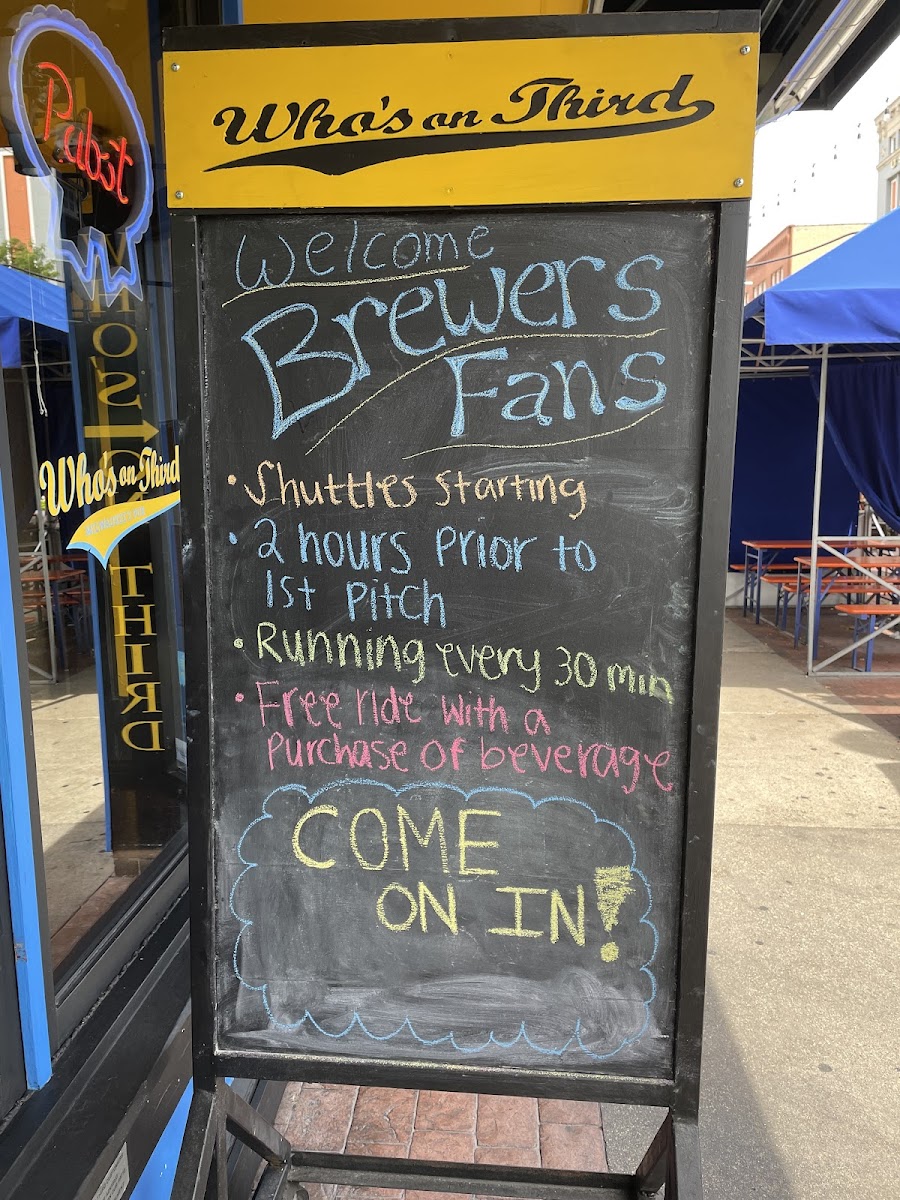 Who's on Third
Welcome
Brewers
Fans
• Shuttles Starting
• 2 hours Prior to
1st Pitch
• Running every 30 min
• Free ride with a
Purchase of beverage
COME
ON IN!
Pabst
WHO'S
THIRD
Who's on Third